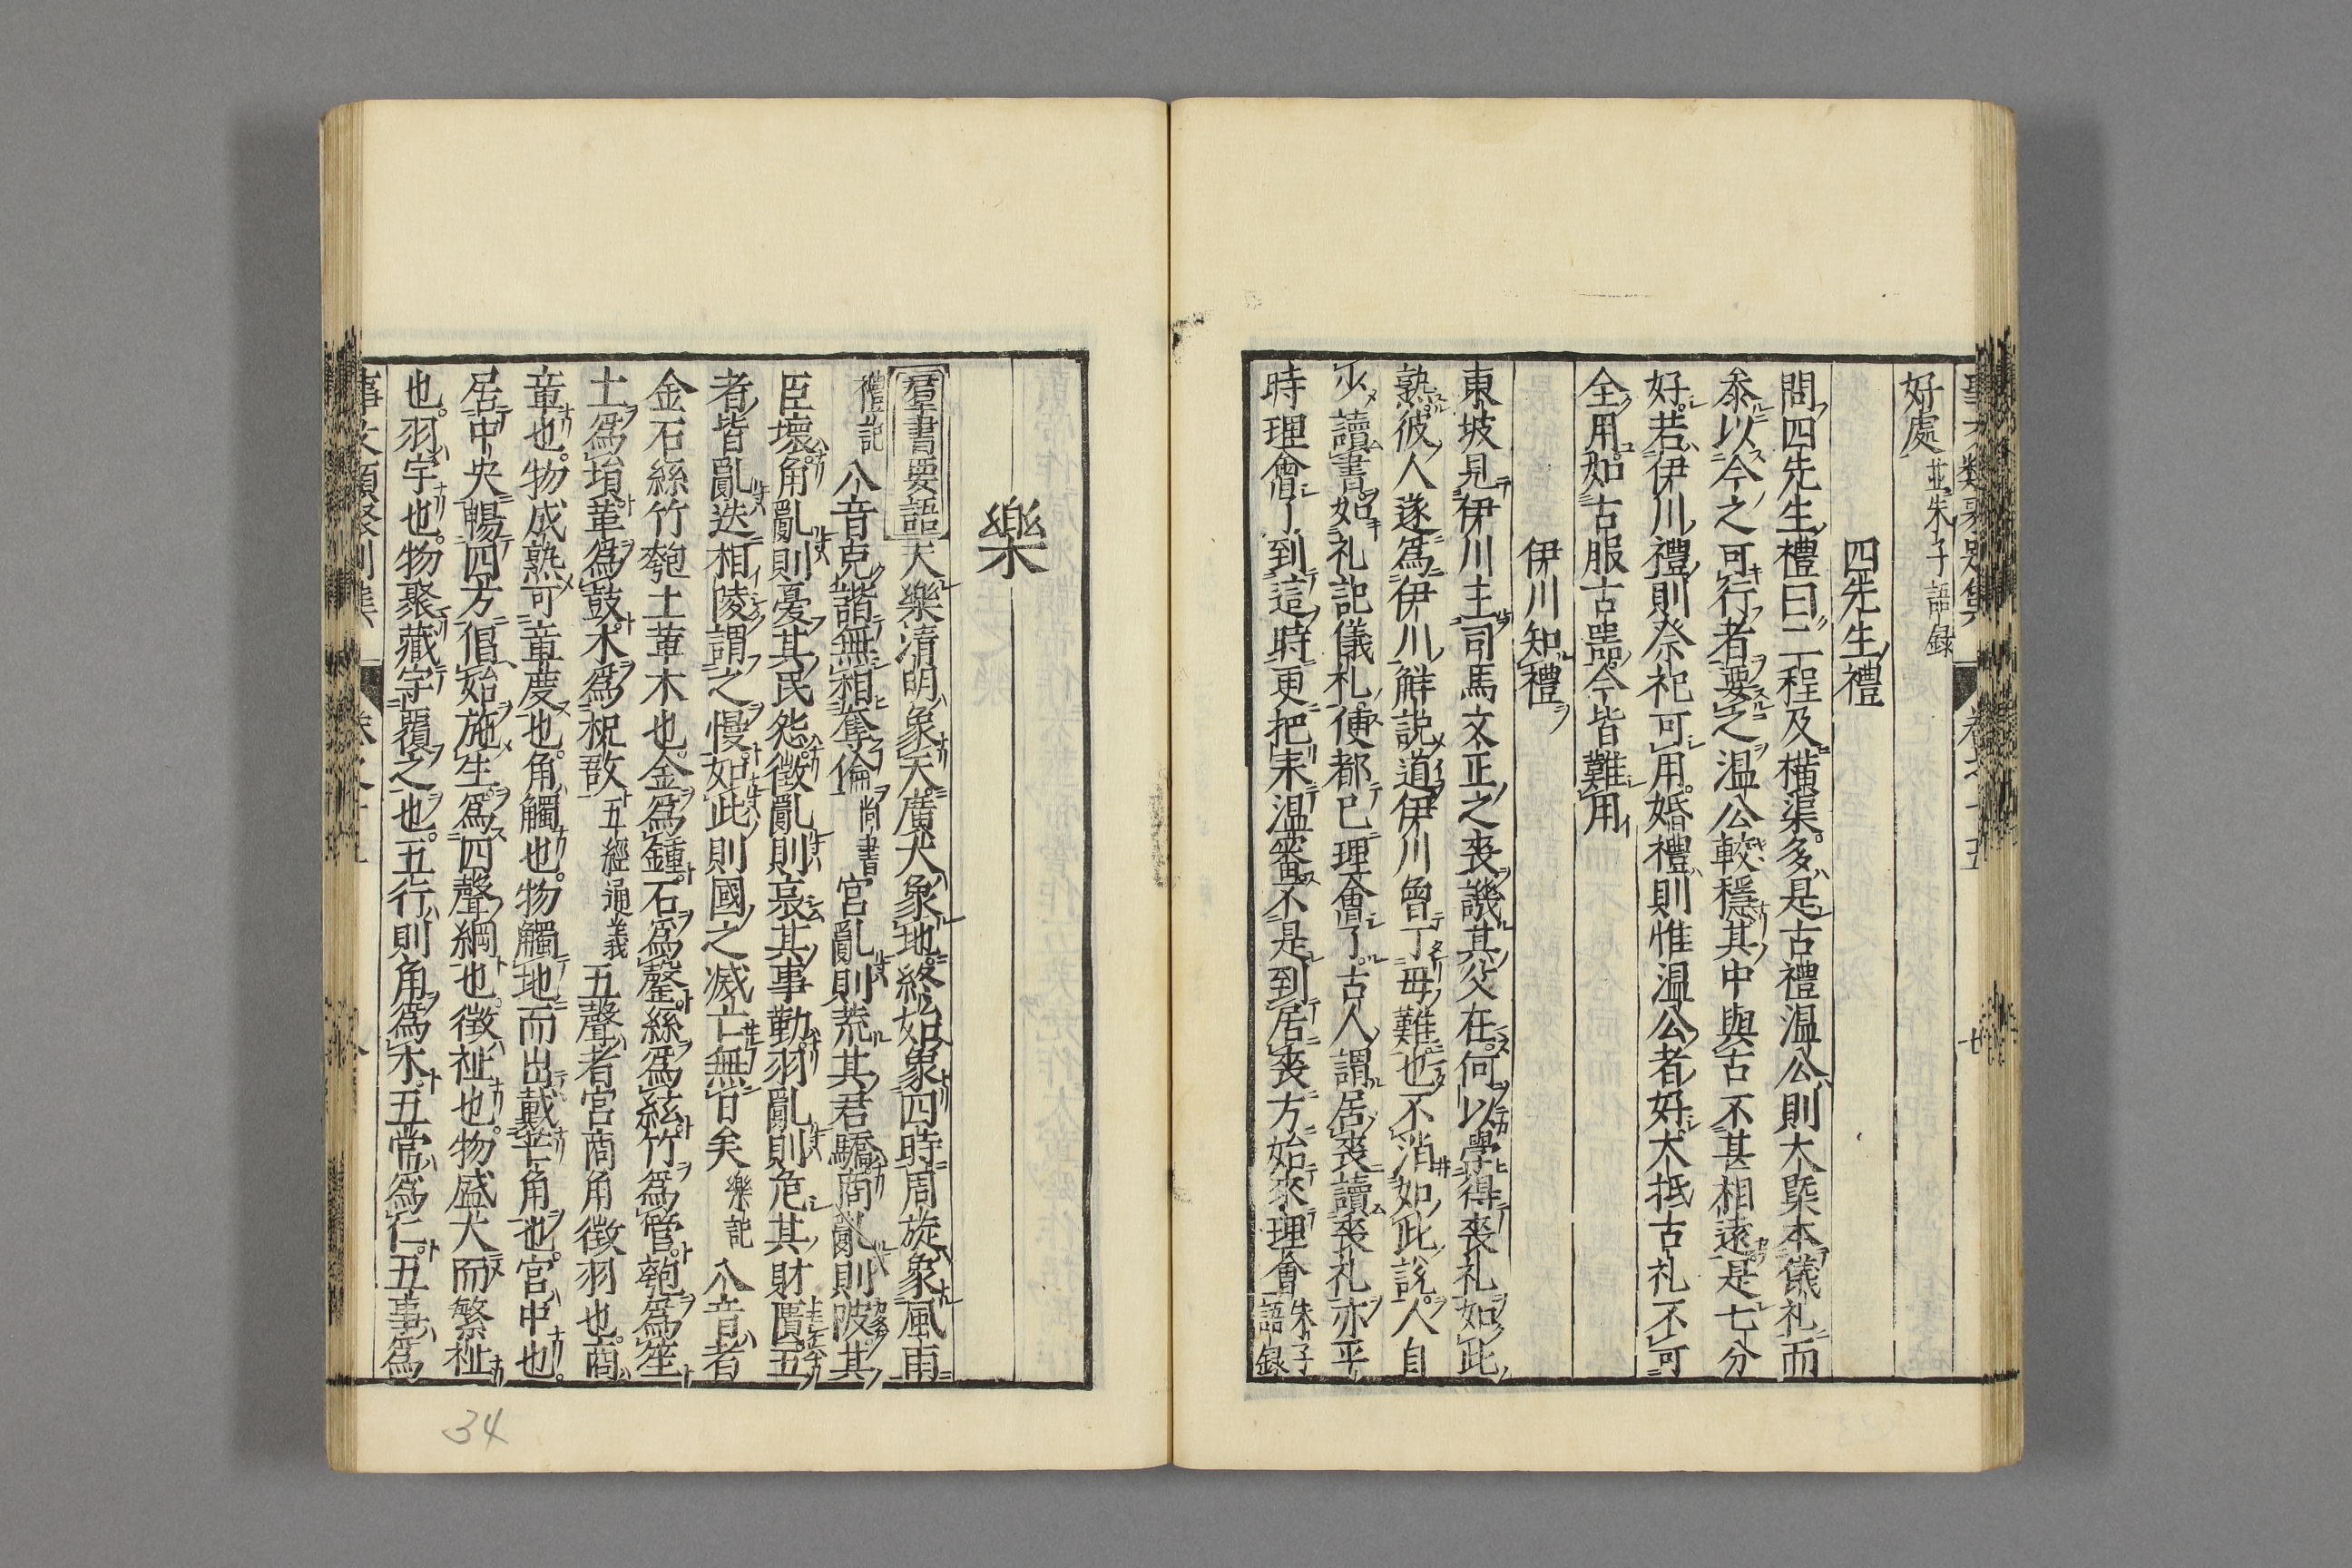 好處 並朱子語録
四先生禮
問四先生禮曰二程及横渠多是古禮温公則大槩本儀礼而
叅以今之可行者要之温公較穩其中與古不甚相遠是七分
好若伊川禮則祭祀可用婚禮則惟温公者好大抵古礼不可
全用如古服古噐今皆難用
伊川知禮
東坡見伊川主司馬文正之喪譏其父在何以學得喪礼如此
熟彼人遂爲伊川觧説道伊川曽丁母難也不消如此説人自
少讀書如礼記儀礼便都已理會了古人謂居喪讀喪礼亦平
時理會了到這時更把来温審不是到居喪方始來理會 朱子語録
樂
羣書要語 天樂清明象天廣大象地終始象四時周旋象風雨
禮記 八音克諧無相奪倫 尚書 宮亂則荒其君驕商亂則陂其
臣壞角亂則憂其民怨徴亂則哀其事勤羽亂則危其財匱五
者皆亂迭相陵謂之慢如此則國之滅亡無日矣 樂記 八音者
金石絲竹匏土革木也金爲鍾石爲罄絲爲絃竹爲管匏爲笙
土爲塤革爲鼓木爲柷敔 五經通義 五聲者宮商角徴羽也商
章也物成熟可章度也角觸也物觸地而出戴芒角也宮中也
居中央暢四方倡始施生爲四聲綱也徴祉也物盛大而繁祉
也羽宇也物聚藏宇覆之也五行則角爲木五常爲仁五事爲
34